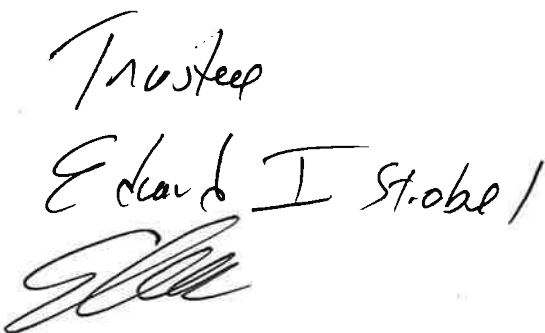 Trustee
Edward I Strobel